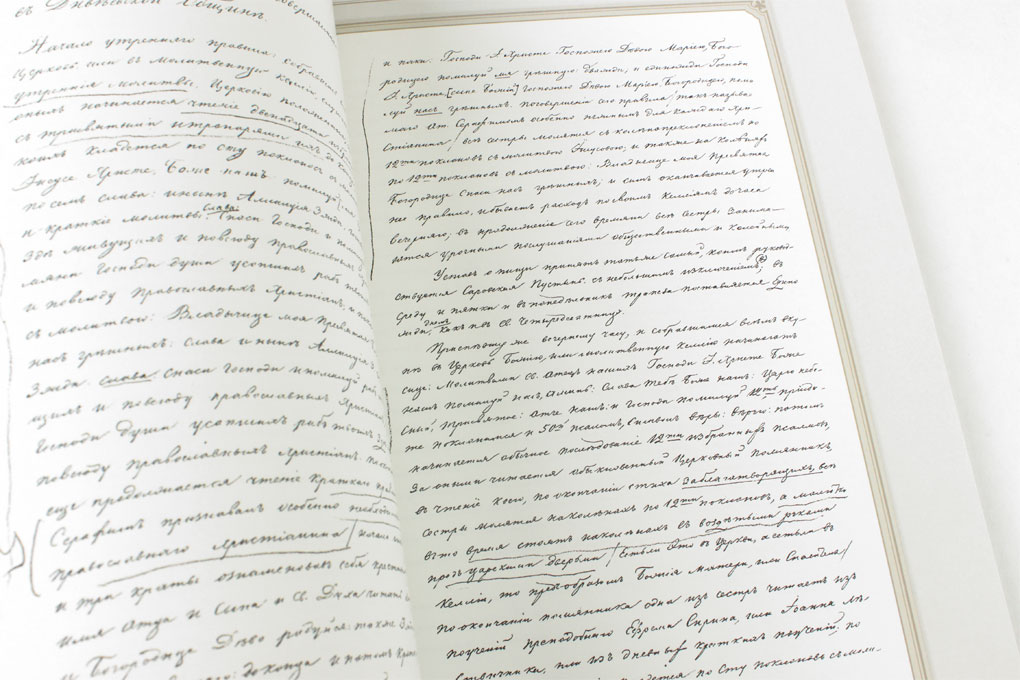 въ Дивѣевской Общинѣ.
Начало утренняго правила: собрав
Церковь или въ молитвенную келлію
утреннія молитвы. Церковію положен
оныхъ начинается чтеніе двенадцати
съ трисвятымъ и тропарями
коихъ кладется по сту поклоновъ съ
Іисусе Христе, Боже нашъ помилуй
по семъ слава: и нынѣ Аллилуія 3жды
и краткіе молитвы: слава: спаси Господи и
здѣ живущимъ и повсюду православныя
мяни Господи души усопшихъ рабъ
и повсюду православныхъ Христіанъ
съ молитвою: Владычице моя Пресвятая
насъ грѣшныхъ: слава и нынѣ Аллилуія
3жды. слава: спаси Господи и помилуй
щихъ и повсюду православныя Христіан
Господи души усопшихъ рабъ твоихъ
повсюду православныхъ Христіанъ.
еще продолжается чтеніе краткаго
Серафимъ признавалъ особенно
православнаго Христіанина
и три краты ознаменовавъ себя крестн
имя Отца и Сына и Св. Духа читать
Богородице Дѣво радуйся: также 3
до конца и потомъ
и паки. Господи І. Христе Госпожею Дѣвою Маріею Бого-
родицею помилуй мя грѣшную дважды, и единожды Господи
І. Христе [сыне Божій] Госпожею Дѣвою Маріею Богородицею, поми
луй насъ грѣшныхъ. По совершеніи его правила такъ называ
маго От. Серафимомъ особенно нужнымъ для каждаго Хри-
стіанина, всѣ сестры молятся съ колѣнопреклоненіемъ по
12ть поклоновъ съ молитвою Іисусовою, и также на колѣняхъ
по 12ть поклоновъ съ молитвою: Владычице моя Пресвятая
Богородице спаси насъ грѣшныхъ; и симъ оканчивается утрен
нее правило, и бываетъ расходъ по своимъ келліямъ до часа
вечерняго, въ продолженіе его времени всѣ сестры занима-
ются урочными послушаніями общественными и келейными
Уставъ о пищи принятъ тотъ же самый, коимъ руковод
ствуется Саровская Пустынь съ небольшимъ изключеніемъ, въ
среду и пятки и въ понедѣльникъ трапеза поставляется едино
жды днемъ, какъ и въ Св. Четыредесятницу.
Приспѣвшу же вечернему часу, и собравшимся всѣмъ вку
пѣ въ Церковь Божію, или молитвенную келлію начинаютъ
сице: Молитвами Св. Отецъ нашихъ Господи І. Христе Боже
нашъ помилуй насъ, аминь: Слава Тебѣ Боже нашъ: Царю небе-
сный, Трисвятое: Отче нашъ: и Господи помилуй 12ть пріиди-
те поклонимся и 50й псаломъ, символъ вѣры: вѣрую: потомъ
начинается обычное послѣдованіе 12ти избранныхъ псалмовъ,
За оными читается обыкновенный Церковный помянникъ,
въ чтеніе коего, по окончаніи стиха за благотворящихъ, всѣ
сестры молятся на колѣняхъ по 12ть поклоновъ, а
въ то время стоятъ на колѣняхъ съ воздѣтыми руками
предъ царскими дверьми, (естьли это въ церкви, а естьли въ
келліи, то предъ образомъ Божія Матери, или Спасителя)
По окончаніи помянника одна изъ сестръ читаетъ изъ
поученій преподобнаго Ефрема Сирина, или Іоанна Лѣ-
ствичника, или изъ дневныхъ краткихъ поученій, по
по сту поклоновъ съ моли-